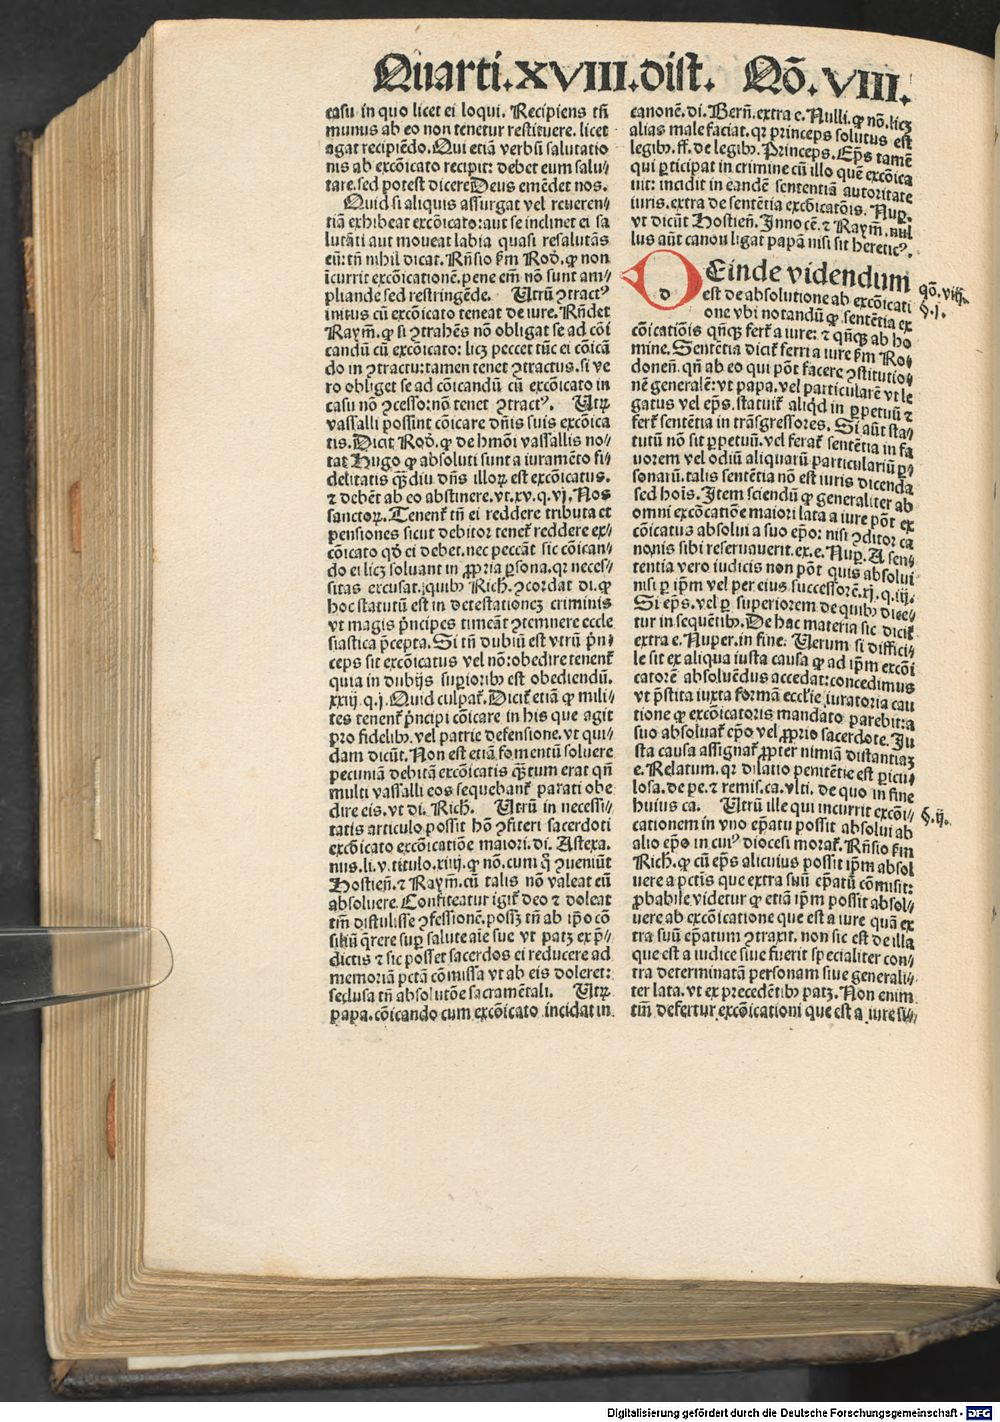 Quarti.XVIII.dist. Qō.VIII.
casu in quo licet ei loqui. Recipiens tñ
munus ab eo non tenetur restituere. licet
agat recipiēdo. Qui etiā verbū salutatio
nis ab excōicato recipit: debet eum salu/
tare. sed potest dicere Deus emēdet nos.
Quid si aliquis assurgat vel reueren/
tiā exhibeat excōicato: aut se inclinet ei sa
lutāti aut moueat labia quasi resalutās
eū: tñ nihil dicat. Rñsio ẜm Rod̄. ꝙ non
īcurrit excōicationē. pene em̄ nō sunt am/
pliande sed restringēde. Utrū ꝯtractꝰ
initus cū excōicato teneat de iure. Rñdet
Raym̄. ꝙ si ꝯtrahēs nō obligat se ad cōi
candū cū excōicato: licꝫ peccet tūc ei cōicā
do in ꝯtractu: tamen tenet ꝯtractus. si ve
ro obliget se ad cōicandū cū excōicato in
casu nō ꝯcesso: nō tenet ꝯtractꝰ. Utꝝ
vassalli possint cōicare dñis suis excōica
tis. Dicit Rod̄. ꝙ de hmōi vassallis no/
tat Hugo ꝙ absoluti sunt a iuramēto fi/
delitatis qȝdiu dñs illoꝝ est excōicatus.
⁊ debēt ab eo abstinere. vt. xv. q. vj. Nos
sanctoꝝ. Tenent̄ tñ ei reddere tributa et
pensiones sicut debitor tenet̄ reddere ex/
cōicato qd̄ ei debet. nec peccāt sic cōican/
do ei licꝫ soluant in ꝓpria ꝑsona. qꝛ neces/
sitas excusat. quibꝰ Rich. ꝯcordat di. ꝙ
hoc statutū est in detestationeꝫ criminis
vt magis p̄ncipes timeāt ꝯtemnere eccle
siastica p̄cepta. Si tñ dubiū est vtrū p̄n/
ceps sit excōicatus vel nō: obedire tenent̄
quia in dubijs supioribꝰ est obediendū.
xxiij. q. j. Quid culpat̄. Dicit̄ etiā ꝙ mili/
tes tenent̄ p̄ncipi cōicare in his que agit
pro fidelibꝰ. vel patrie defensione. vt qui/
dam dicūt. Non est etiā fomentū soluere
pecuniā debitā excōicatis qȝtum erat qñ
multi vassalli eos sequebant̄ parati obe
dire eis. vt di. Rich. Utrū in necessi/
tatis articulo possit hō ꝯfiteri sacerdoti
excōicato excōicatiōe maiori. di. Astexa.
nus. li. v. titulo. xiiij. ꝙ nō. cum q̄ ꝯueniūt
Hostien̄. ⁊ Raym̄. cū talis nō valeat eū
absoluere. Confiteatur igit̄ deo ⁊ doleat
tm̄ distulisse ꝯfessionē. possꝫ tñ ab ip̄o cō
siliū q̄rere suꝑ salute aīe sue vt patꝫ ex p̄/
dictis ⁊ sic posset sacerdos ei reducere ad
memoriā pctā cōmissa vt ab eis doleret:
seclusa tñ absolutōe sacramētali. Utꝝ
papa. cōicando cum excōicato incidat in
canonē. di. Berñ. extra e. Nulli. ꝙ nō. licꝫ
alias male faciat. qꝛ princeps solutus est
legibꝰ. ff. de legibꝰ. Princeps. Ep̄s tamē
qui ꝑticipat in crimine cū illo quē excōica
uit: incidit in eandē sententiā autoritate
iuris. extra de sentētia excōicatōis. Nup̄.
vt dicūt Hostien̄. Innocē. ⁊ Raym̄. nul
lus aūt canon ligat papā nisi sit hereticꝰ.
DEinde videndum
est de absolutione ab excōicati
one vbi notandū ꝙ sentētia ex
cōicatiōis qñqꝫ fert̄ a iure: ⁊ qñqꝫ ab ho
mine. Sentētia dicit̄ ferri a iure ẜm Ro/
donen̄. qñ ab eo qui pōt facere ꝯstitutio/
nē generalē: vt papa. vel particularē vt le
gatus vel ep̄s. statuit̄ aliqd̄ in ꝑpetuū ⁊
fert̄ sentētia in trāsgressores. Si aūt sta/
tutū nō sit ꝑpetuū. vel ferat̄ sentētia in fa
uorem vel odiū aliquarū particulariū ꝑ/
sonarū. talis sentētia nō est iuris dicenda
sed hoīs. Item sciendū ꝙ generaliter ab
omni excōcatiōe maiori lata a iure pōt ex
cōicatus absolui a suo ep̄o: nisi ꝯditor ca
nonis sibi reseruauerit. ex. e. Nup̄. A sen/
tentia vero iudicis non pōt quis absolui
nisi ꝑ ip̄m vel per eius successorē. xj. q. iij.
Si ep̄s. vel ꝑ superiorem de quibꝰ dice/
tur in sequētibꝰ. De hac materia sic dicit̄
extra e. Nuper. in fine. Verum si diffici/
le sit ex aliqua iusta causa ꝙ ad ip̄m excōi
catorē absoluēdus accedat: concedimus
vt p̄stita iuxta formā ecclīe iuratoria cau
tione ꝙ excōicatoris mandato parebit: a
suo absoluat̄ ep̄o vel ꝓprio sacerdote. Iu
sta causa assignat̄ ꝓpter nimiā distantiaꝫ
e. Relatum. qꝛ dilatio penitētie est ꝑicu/
losa. de pe. ⁊ remis. ca. vlti. de quo in fine
huius ca. Utrū ille qui incurrit excōi/
cationem in vno ep̄atu possit absolui ab
alio ep̄o in cuiꝰ diocesi morat̄. Rñsio ẜm
Rich. ꝙ cū ep̄s alicuius possit ip̄m absol
uere a pctis que extra suū ep̄atū cōmisit:
ꝓbabile videtur ꝙ etiā ip̄m possit absol/
uere ab excōicatione que est a iure quā ex
tra suū ep̄atum ꝯtraxit. non sic est de illa
que est a iudice siue fuerit specialiter con/
tra determinatā personam siue generali/
ter lata. vt ex precedētibꝰ patꝫ. Non enim
tm̄ defertur excōicationi que est a iure su/
qō. viij.
§. j.
§. ij.
Digitalisierung gefördert durch die Deutsche Forschungsgemeinschaft - DFG